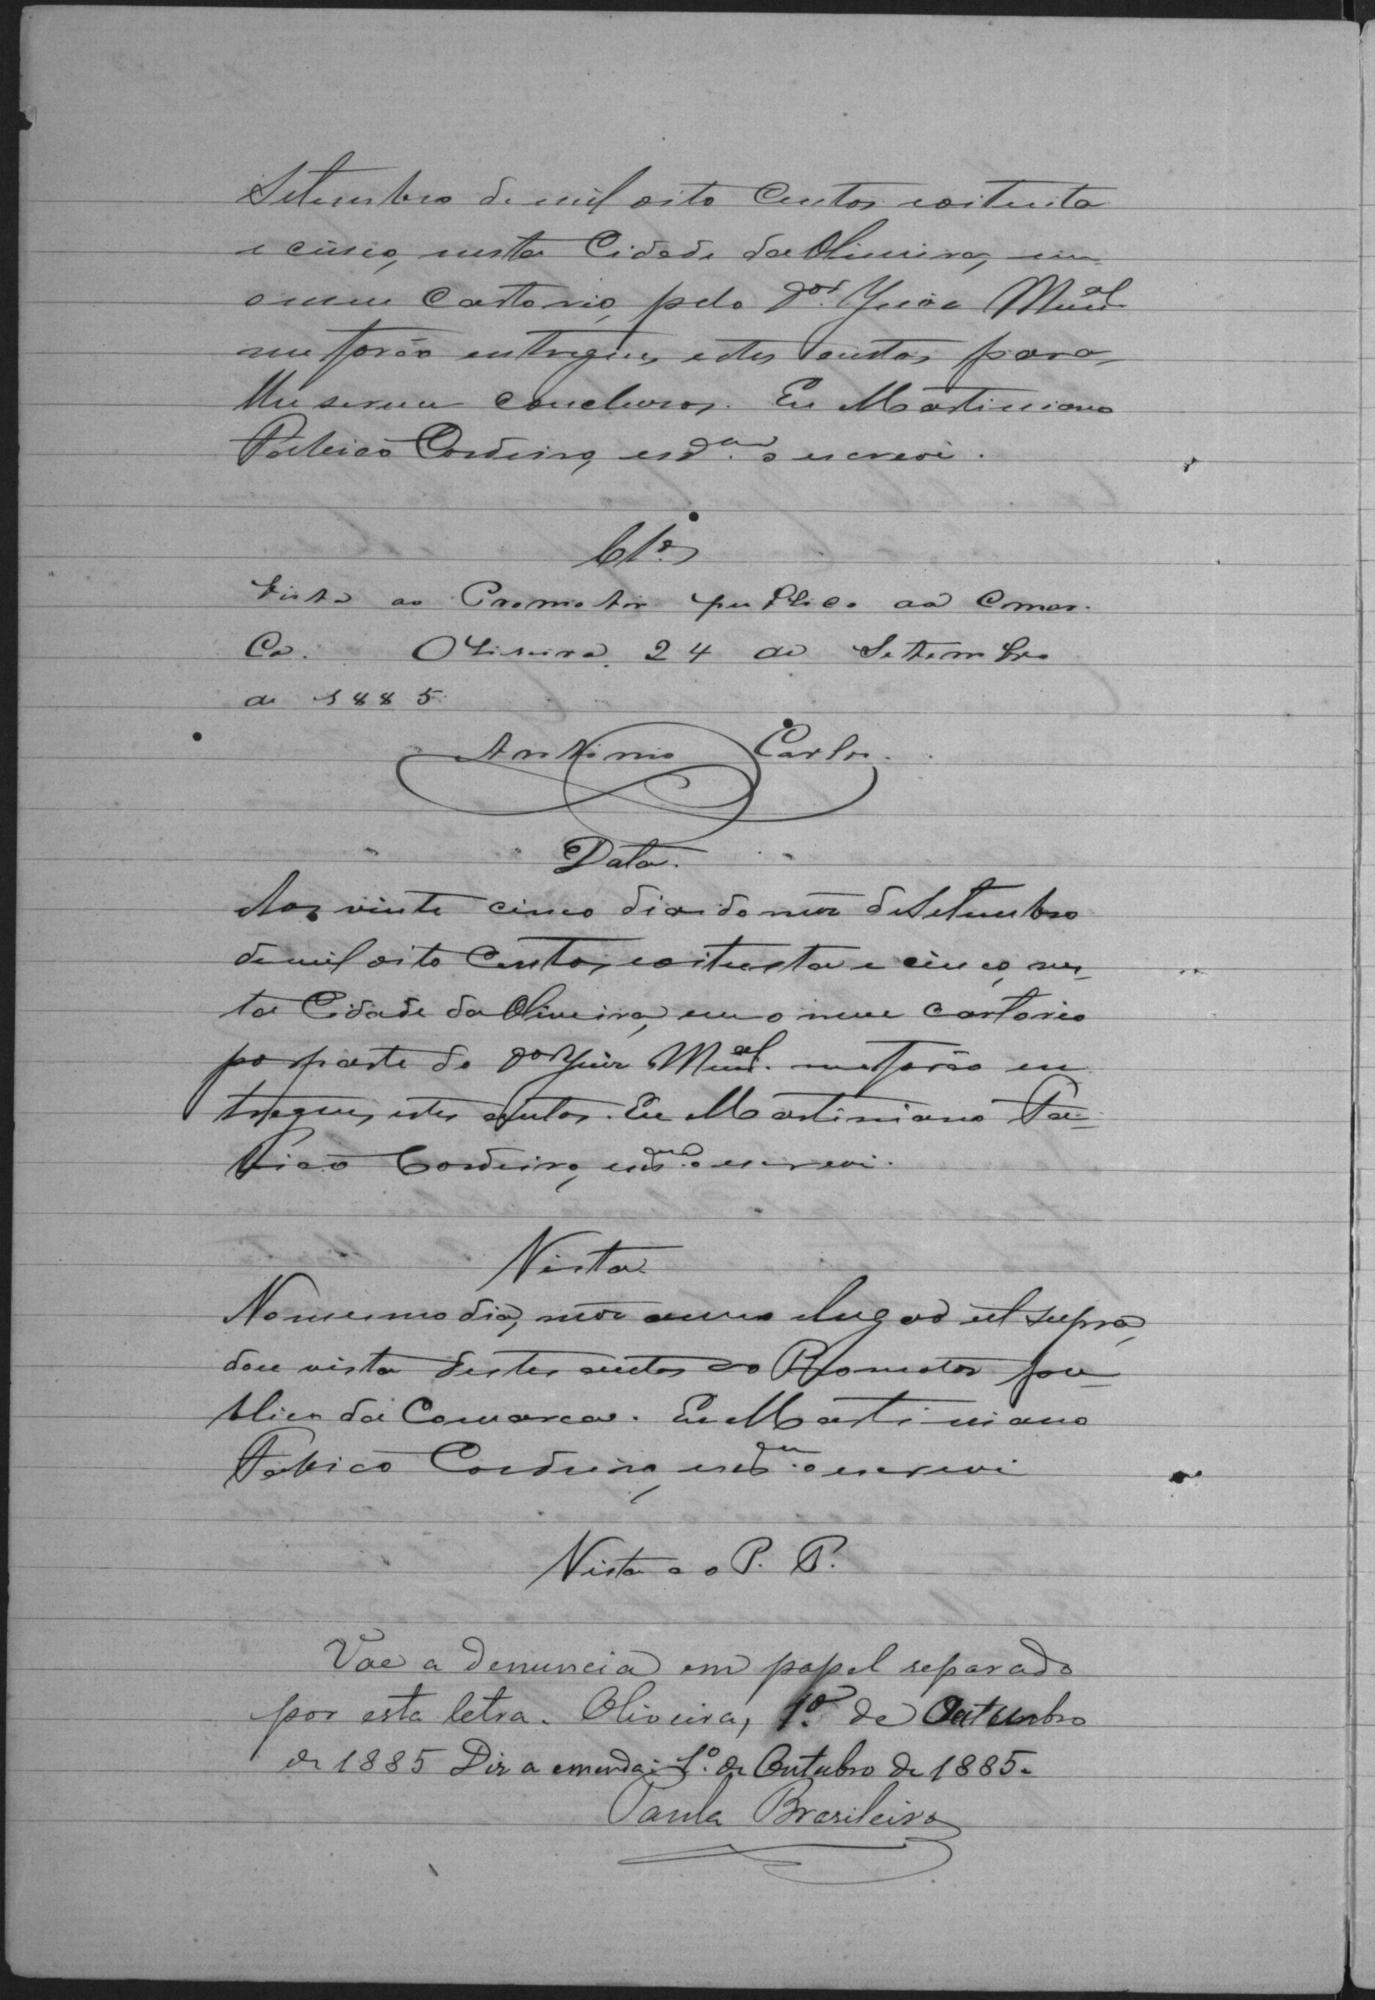 Setembro de mil oito Centos e oitenta
e cinco, nesta Cidade da Oliveira, em
o meu Cartorio, pelo Dor. Juiz Mual
me forão entregues estes autos para
lhe serem conclusos. Eu Martiniano
Patricio Cordeiro, esc. o escrevi.
Clos
Vista ao Promotor publico da Comar-
ca. Oliveira 24 de Setembro
de 1885
Antonio Carlos.
Data.
Aos vinte cinco dias do mez de Setembro
de mil oito Centos e oitenta e cinco, nes-
ta Cidade da Oliveira, em o meu cartorio
por parte do Dor Juiz Mual. me forão en
tregues estes autos. Eu Martiniano Pa-
tricio Cordeiro, o escrevi.
Vista
No mesmo dia, mez anno e lugar ut supra,
dou vista destes autos ao Promotor pu-
blico da Comarca. Eu Martiniano
Patricio Cordeiro, o escrevi
Vista ao P. P.
Vae a denuncia em papel separado
por esta letra. Oliveira, 1º. de Outubro
de 1885 Diz a emenda: 1º. de Outubro de 1885.
Paula Brasileiro